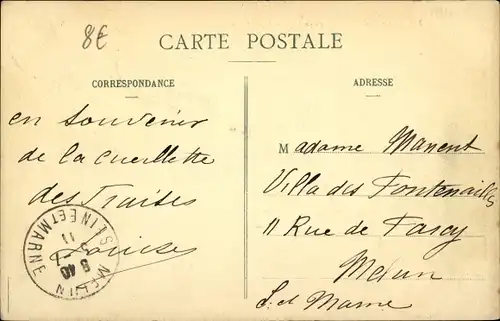 8€
CARTE POSTALE
CORRESPONDANCE
ADRESSE
en souvenir
de la cueillette
des Fraises
Louise
Madame Manent
Villa des Fontenailles
11 Rue de Farcy
Melun
S. et Marne
MELUN
SEINE ET MARNE
5 40
11